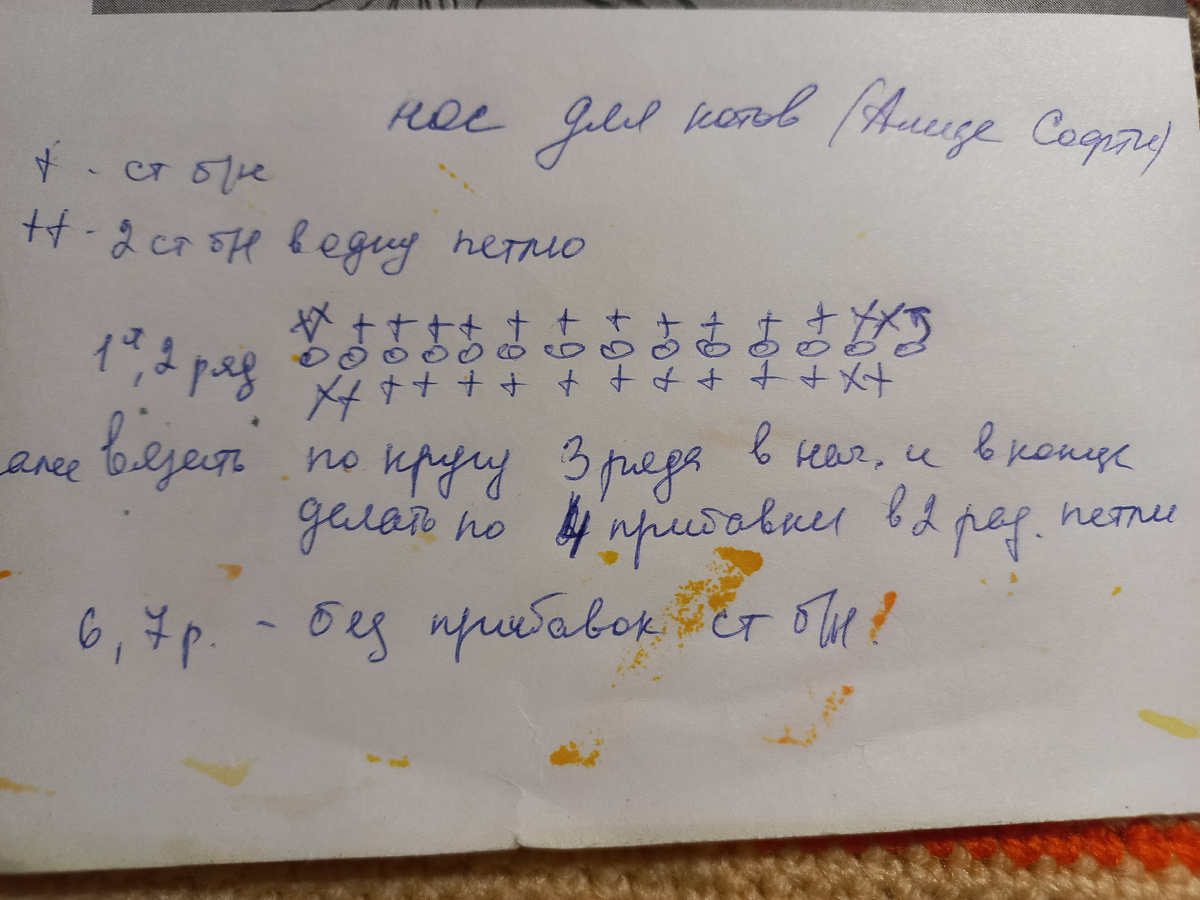 нос для котов (Алиze Софти)
+ - ст б/н
++ - 2 ст б/н в одну петлю
1й, 2 ряд
xx + + + + + + + + + + xx
o o o o o o o o o o o o o o
x+ + + + + + + + + + + x+
алее вязать по кругу 3 ряда в нач. и в конце
делать по 4 прибавки в 2 ряд. петли
6, 7 р. - без прибавок ст б/н!